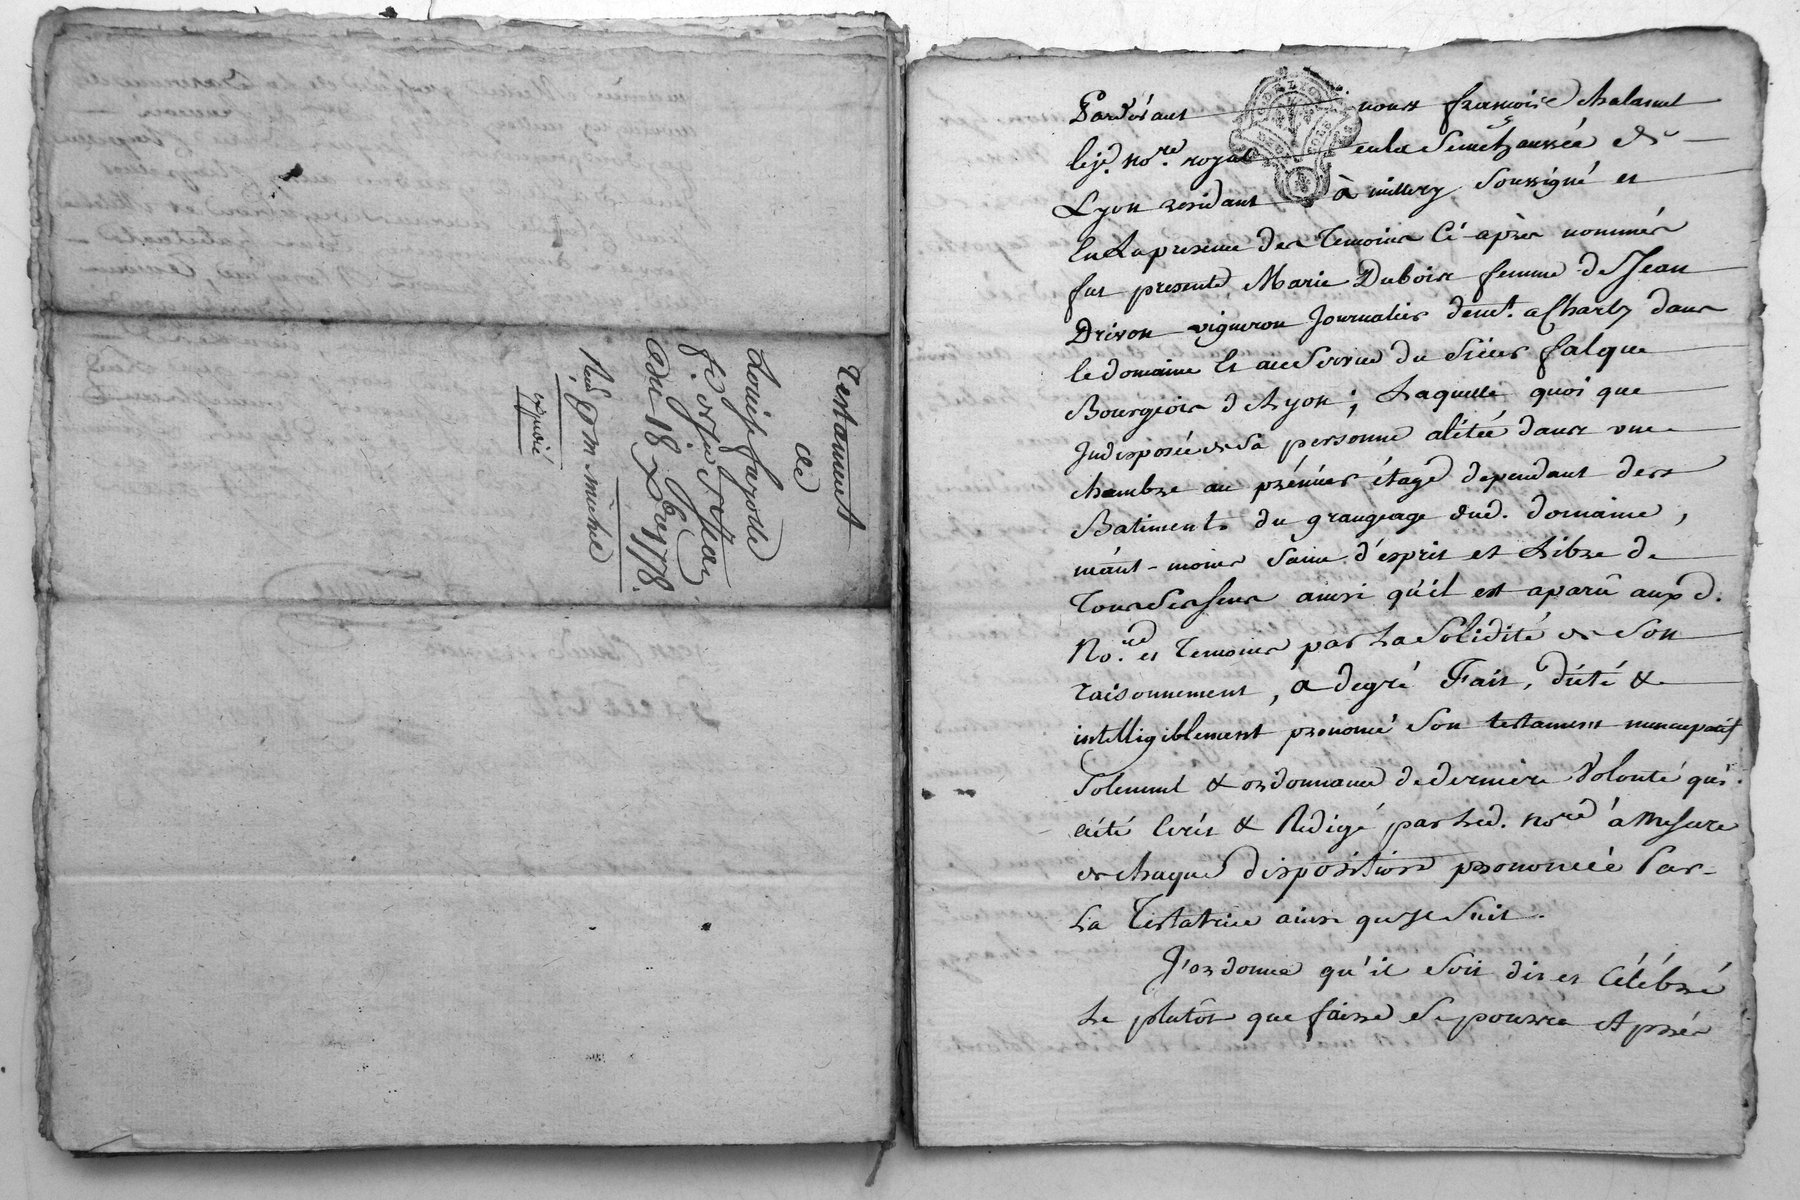 Testament
de
Louise fayolle
f.e d'oyfu S.t Jean
du 18 Xbre 1778.
Reçu 9 m michel
expedié
Pardevant nous françois chalamel
le j.e no.re royal en la Senechaussée de
Lyon residant à millery soussigné et
En La presence des Temoins Ci-après nommés
fut presente Marie Dubois femme de Jean
Drivon vigneron Journalier dem.t a Charly dans
le domaine Et au Service du Sieur falque
Bourgeois de Lyon ; Laquelle quoi que
Indisposée de Sa personne alitée dans une
chambre au prémier étage dependant des
Batiments du grangeage dud. domaine,
néant-moins Saine d'esprit et Libre de
Tous Ses Sens ainsi qu'il est aparû auxd.
No.re et Temoins par La Solidité de Son
raisonnement, a degré Fait, dicté &
intelligiblement prononcé Son testament nuncupatif
Solemnel & ordonnance de derniere Volonté qui
aété Ecrit & Redigé par Led. no.re à Mesure
de chaque disposition prononcée Par
La Testatrice ainsi que Suit.
J'ordonne qu'il Soit dit et Célébré
Le plutôt que faire Se pourra Après